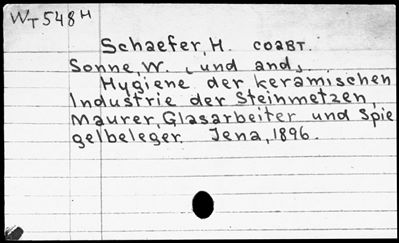 WT548H
Schaefer, H. соавт.
Sonne, W. (und and)
Hygiene der keramischen
Industrie der Steinmetzen,
Maurer, Glasarbeiter und Spie
gelbeleger. Jena, 1896.